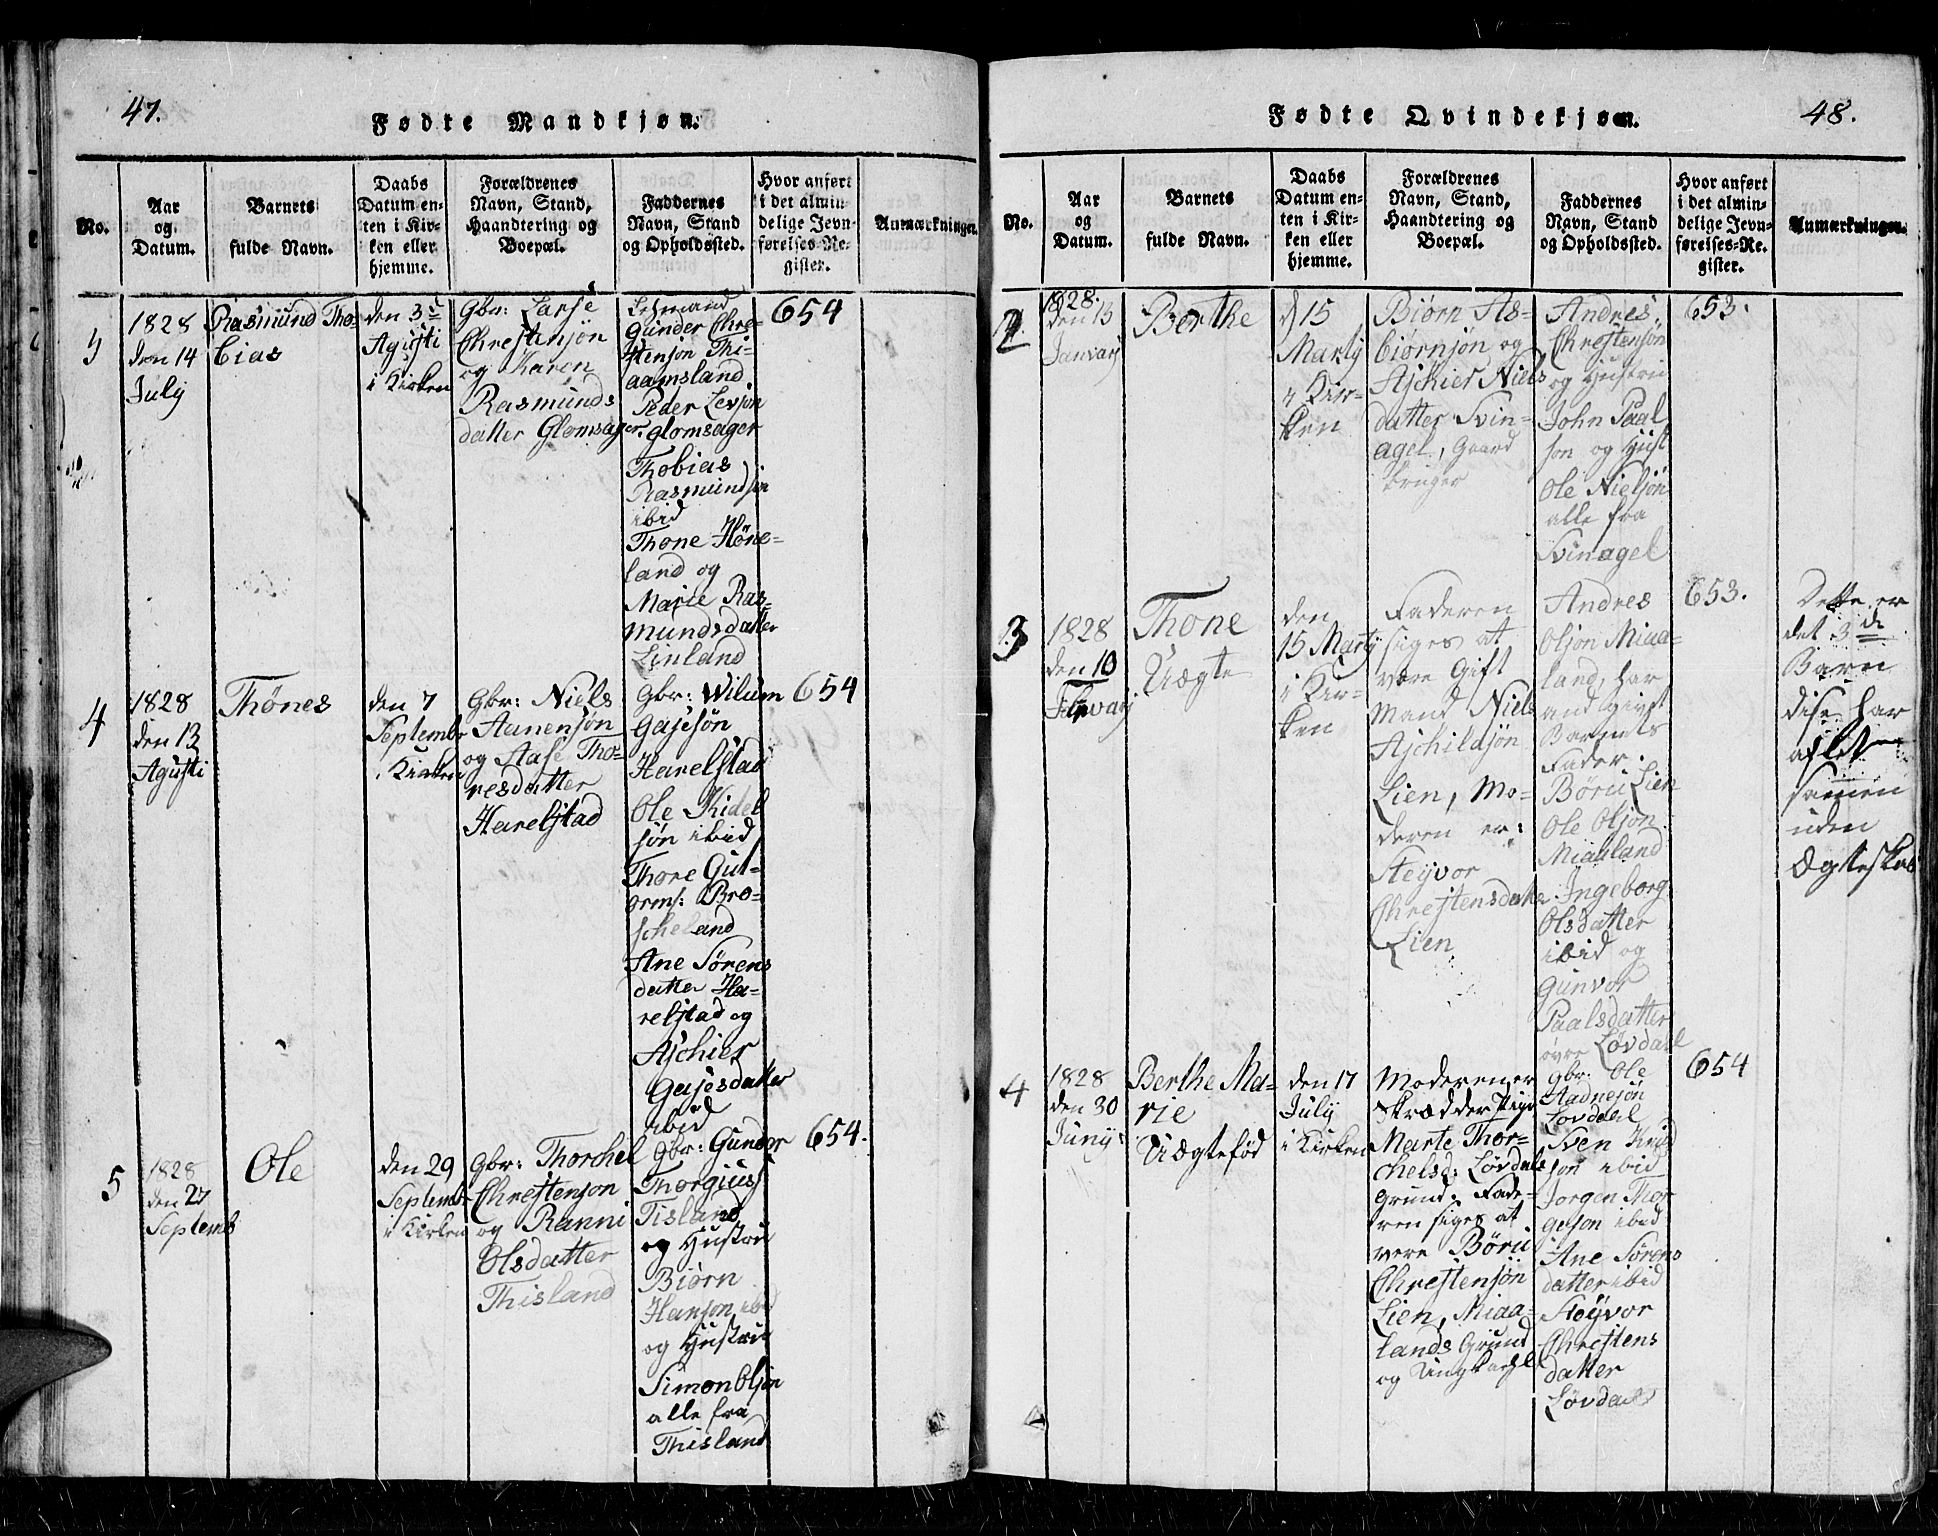 47.
Fødte Mandkjøn.
No.
Aar
og
Datum.
Barnets
fulde Navn.
Daabs
Datum en-
ten i Kir-
ken eller
hjemme.
Forældrenes
Navn, Stand,
Haandtering og
Boepæl.
Faddernes
Navn, Stand
og Opholdssted.
Hvor anført
i det almin-
delige Jevn-
førelses-Re-
gister.
Anmærkninger.
3
1828
den 14
July
Rasmund Tho-
bias
den 3
Agusti
i Kirken
Gbr: Larse
Chrestensøn
og Karen
Rasmunds
datter Glomsager
Lehmand
Gunder Chre-
stensøn Thi-
aamsland
Peder Levson
glomsager
Thobias
Rasmundsøn
ibid
Thone Høne-
land og
Marie Ras-
mundsdatter
Linland
654
4
1828
den 13
Agusti
Thønes
den 7
Septembr
i Kirken
Gbr: Niels
Aanensøn
og Aase Tho-
resdatter
Harelstad
Gbr: Wilum
Gasesøn
Harelstad
Ole Kidel
søn ibid
Thore Gut-
orms: Bro-
scheland
Ane Sørens
datter Ha-
relstad og
Aschier
Gasesdatter
ibid
654
5
1828
den 27
Septemb
Ole
den 29
Septemb
i Kirken
Gbr: Thorchel
Chrestenson
og Ranni
Olsdatter
Thisland
Gbr: Gunder
Thorgius
Tisland
og Hustru
Biørn
Hanson ibid
og Hustrue
Simon Olson
alle fra
Thisland
654.
48.
Fødte Qvindekjøn.
No.
Aar
og
Datum.
Barnets
fulde Navn.
Daabs
Datum en-
ten i Kir-
ken eller
hjemme.
Forældrenes
Navn, Stand,
Haandtering og
Boepæl.
Faddernes
Navn, Stand
og Opholdssted.
Hvor anført
i det almin-
delige Jevn-
førelses-Re-
gister.
Anmærkninger.
2
1828.
den 13
Januarj
Berthe
d 15
Martij
i Kir-
ken
Biørn As-
biørnsøn og
Aschier Niels
datter Svin-
agel, Gaard
bruger
Andres
Chrestensøn
og Hustru
John Paal
søn og Hust
Ole Nielsøn
alle fra
Svinagel
653.
3
1828
den 10
Thone
Uægte
den
15 Martij
i Kir-
ken
Faderen
siges at
være Gift
Mand Niels
Aschildsøn
Lien, Mo-
deren er:
Støyvor
Chrestensdatter
Lien
Andres
Olson Miaa-
land, har
andgivet
Barnets
Fader.
Børu Lien
Ole Olson
Miaaland
Ingeborg
Olsdatter
ibid og
Gunvor
Paalsdatter
øvre Løvdael
653.
Dette er
det 3de
Barn
dise har
aflet
samen
uden
Ægteskab
4
1828
den 30
Junij
Berthe Ma-
rie
Uægtefød
den 17
July
i Kirken
Moderen er
Skrædder Pige
Marte Thor-
chelsd: Løvdals
Grund. Fade-
ren siges at
vere Børu
Chrestensøn
Lien, Miaa-
lands Grund
og Ungkarl
Gbr: Ole
Aadnesøn
Løvdael
Sven Knud
søn ibid
Jørgen Thor
geson ibid
Ane Sørens
datter ibid
Støyvor
Chrestens
datter
Løvdael
654